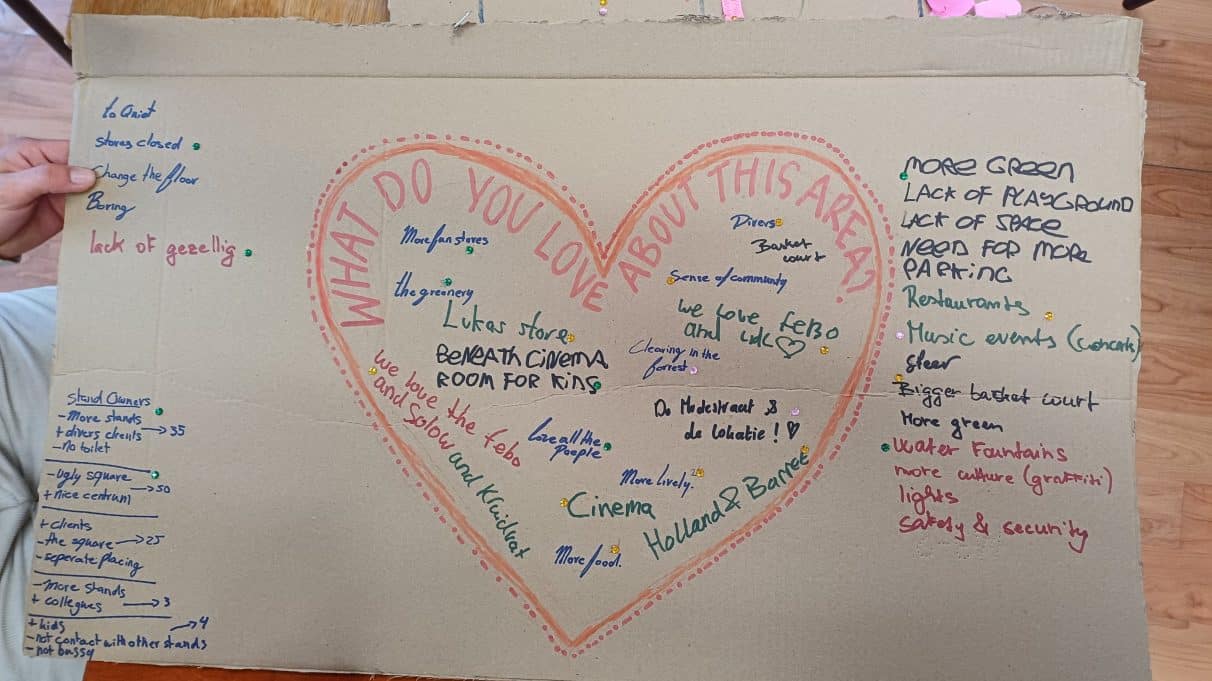 WHAT DO YOU LOVE ABOUT THIS AREA?
to Quiet
stores closed
Change the floor
Boring
lack of gezellig
Stand Owners
- More stands
+ divers clients → 35
- No toilet
- Ugly square
→ 50
+ Nice centrum
+ clients
- the square → 25
- seperate placing
- More stands
+ collegues → 3
+ kids → 4
- not contact with other stands
- not bussy
More fun stores
the greenery
Lukas store
BENEATH CINEMA
ROOM FOR KING
we love the febo
and Solow and Kruidvat
Love all the
people
Cinema
More food.
Divers
Basket
court
Sense of community
We love FEBO
and
Clearing in the
forrest
De Modestraat &
de Lokatie !
More lively.
Holland & Barret
MORE GREEN
LACK OF PLAYGROUND
LACK OF SPACE
NEED FOR MORE
PARKING
Restaurants
Music events (concerts)
sfeer
Bigger basket court
More green
Water Fountains
more culture (graffiti)
lights
safety & security